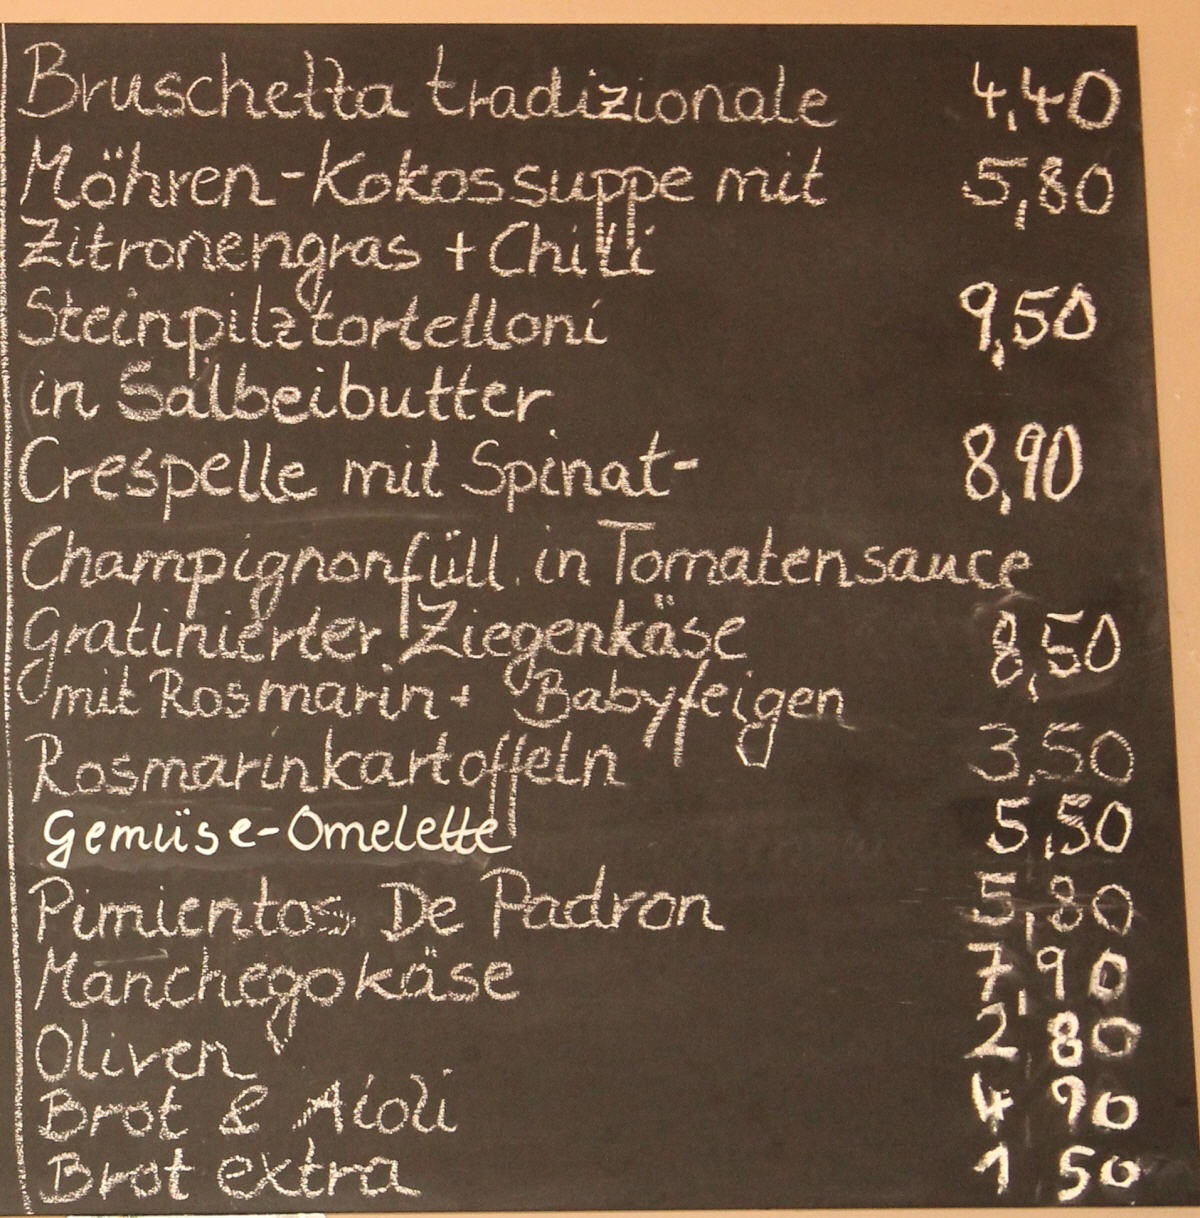 Bruschetta tradizionale 4,40
Möhren-Kokossuppe mit 5,80
Zitronengras + Chilli
Steinpilztortelloni 9,50
in Salbeibutter
Crespelle mit Spinat- 8,90
Champignonfüll. in Tomatensauce
Gratinierter Ziegenkäse 8,50
mit Rosmarin + Babyfeigen
Rosmarinkartoffeln 3,50
Gemüse-Omelette 5,50
Pimientos De Padron 5,80
Manchegokäse 7,90
Oliven 2,80
Brot & Aioli 4 90
Brot extra 1 50